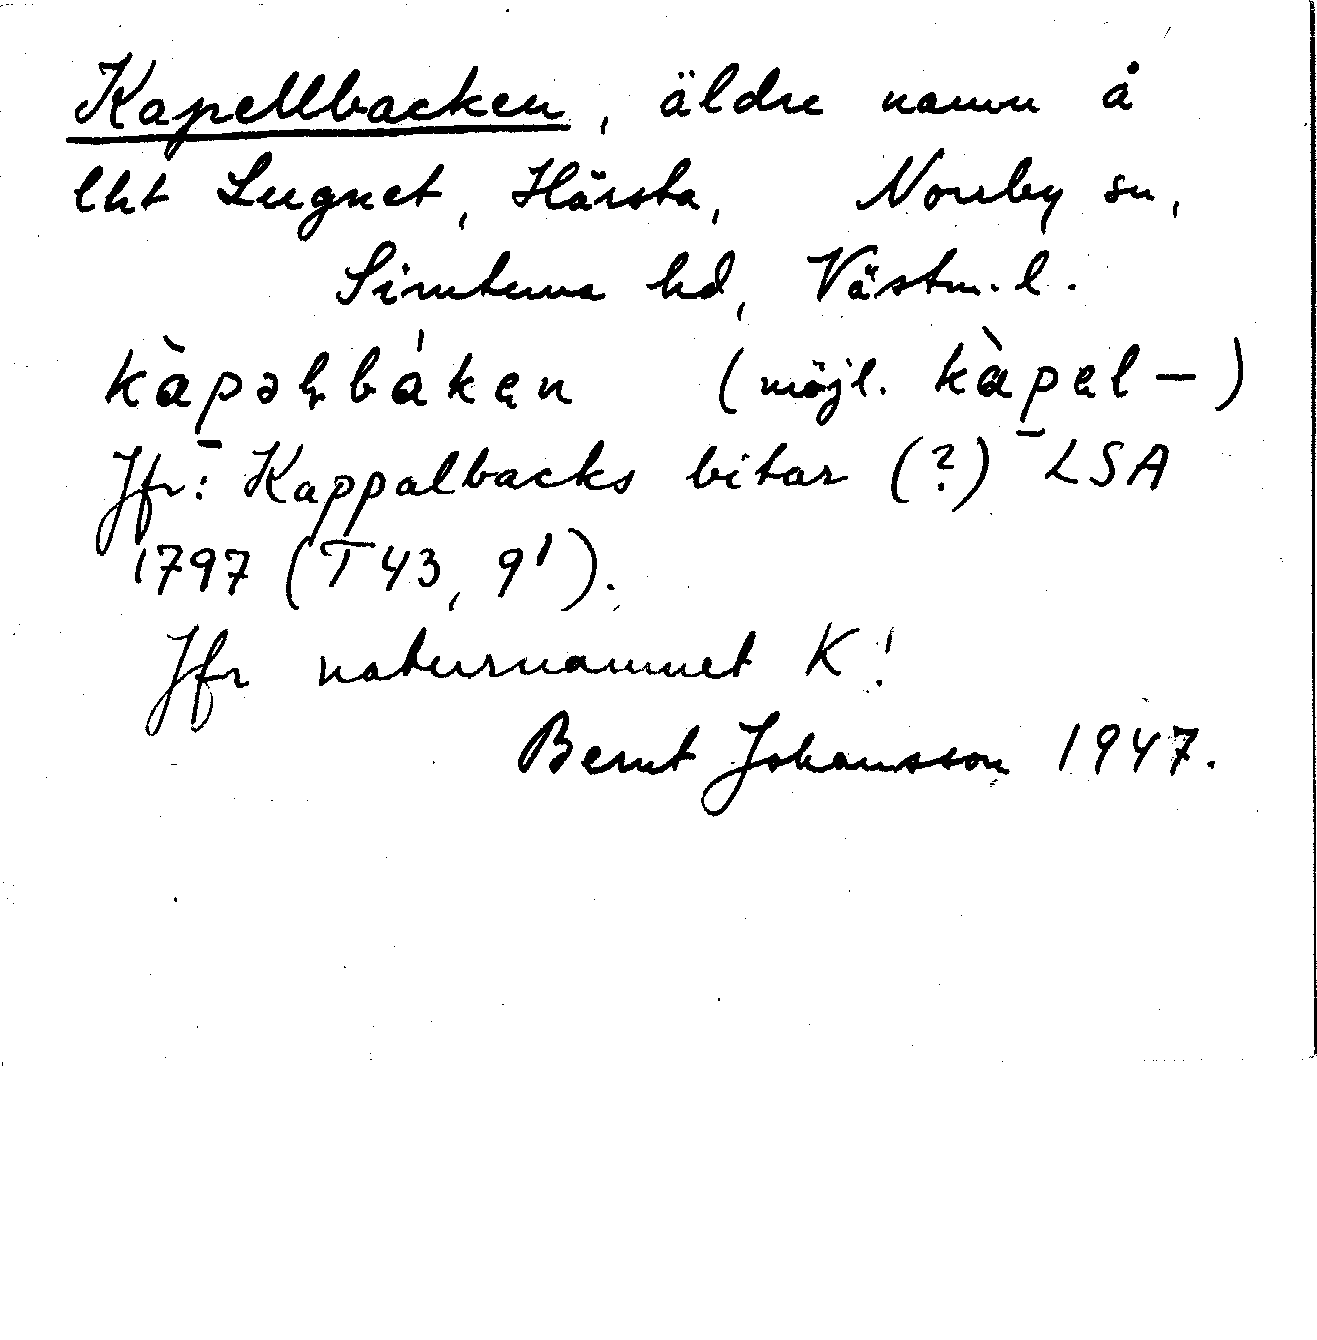 Kapellbacken, äldre namn å
lht Lugnet, Härsta, Norrby sn,
Simtuna hd, Västm. l.
kàpəɫbákən (möjl. kàpəl–)
Jfr: Kappalbacks bitar (?) LSA
1797 (T 43, 9').
Jfr naturnamnet K!
Bernt Johansson 1947.